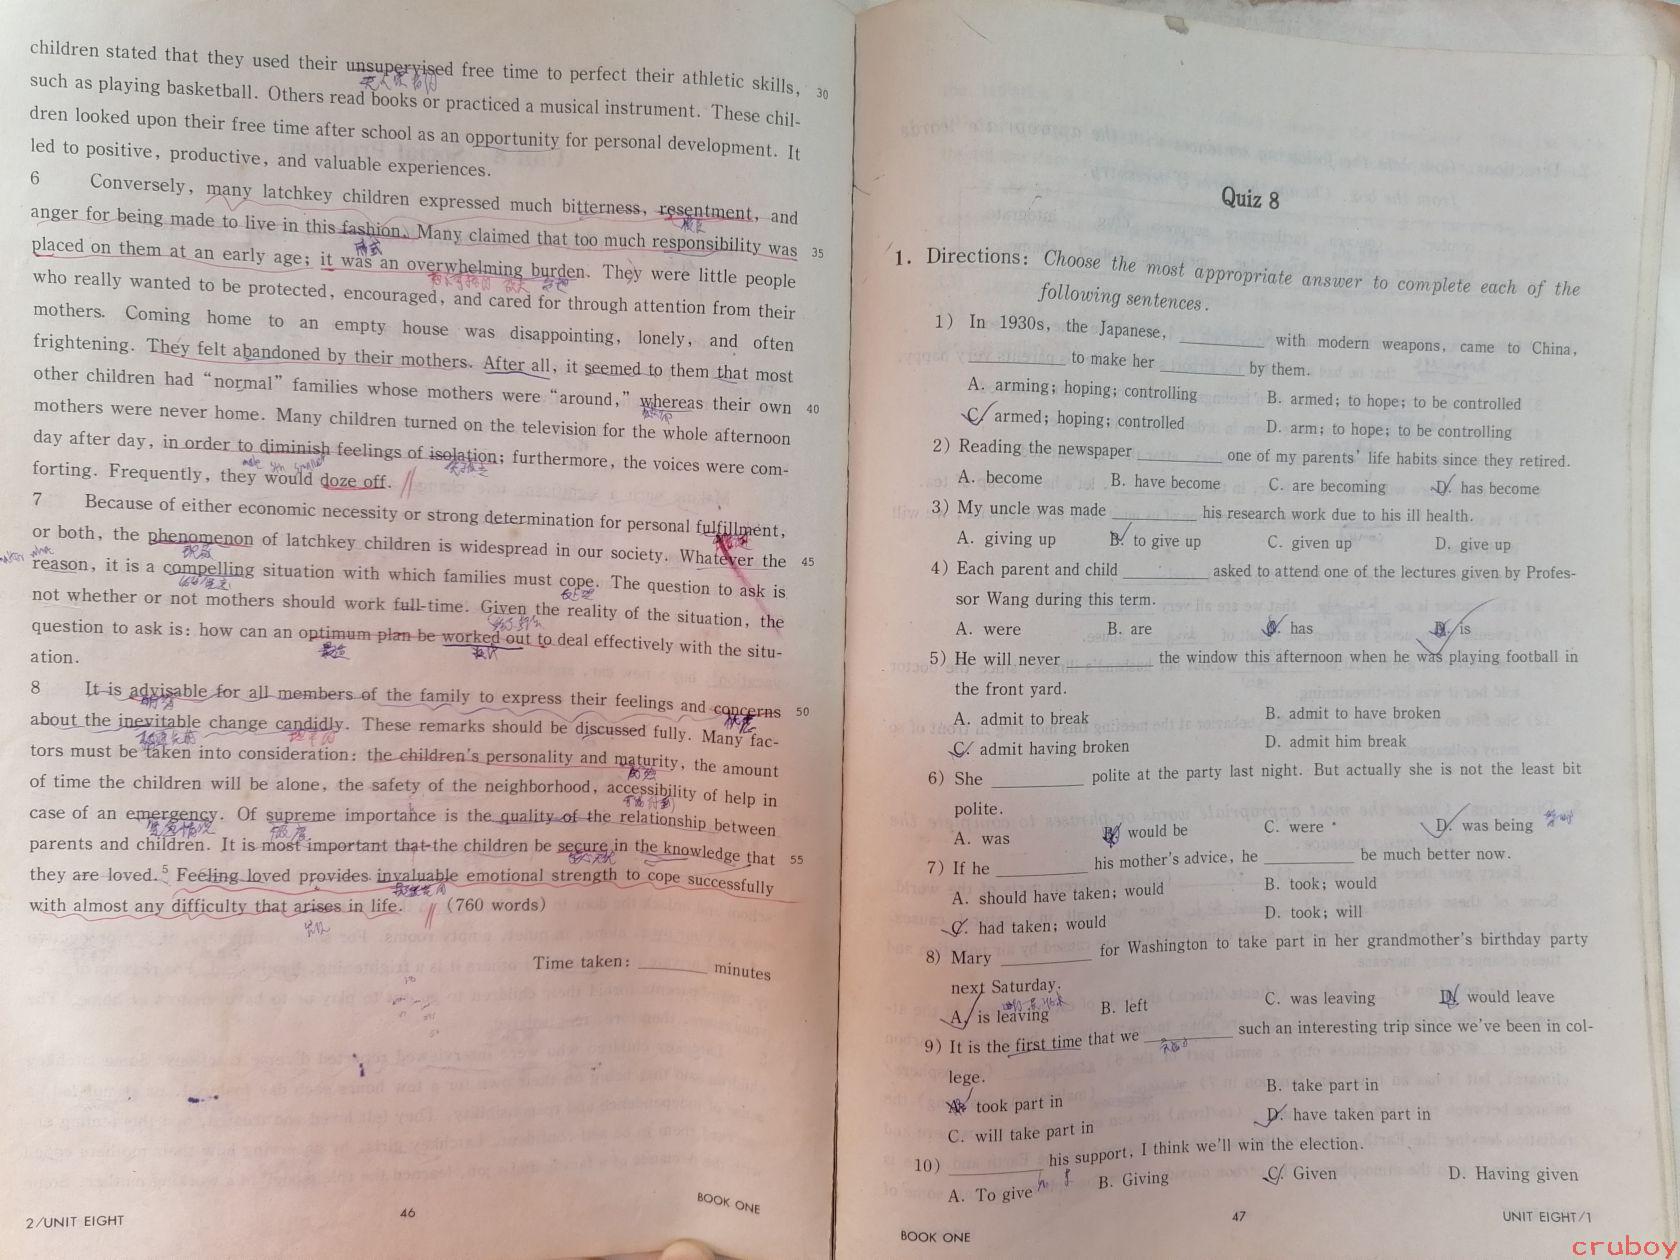 children stated that they used their unsupervised free time to perfect their athletic skills,
such as playing basketball. Others read books or practiced a musical instrument. These chil- 30
dren looked upon their free time after school as an opportunity for personal development. It
led to positive, productive, and valuable experiences.
6 Conversely, many latchkey children expressed much bitterness, resentment, and
anger for being made to live in this fashion. Many claimed that too much responsibility was
placed on them at an early age; it was an overwhelming burden. They were little people 35
who really wanted to be protected, encouraged, and cared for through attention from their
mothers. Coming home to an empty house was disappointing, lonely, and often
frightening. They felt abandoned by their mothers. After all, it seemed to them that most
other children had “normal” families whose mothers were “around,” whereas their own
mothers were never home. Many children turned on the television for the whole afternoon 40
day after day, in order to diminish feelings of isolation; furthermore, the voices were com-
forting. Frequently, they would doze off.
7 Because of either economic necessity or strong determination for personal fulfillment,
or both, the phenomenon of latchkey children is widespread in our society. Whatever the 45
现象
reason, it is a compelling situation with which families must cope. The question to ask is
处理
not whether or not mothers should work full-time. Given the reality of the situation, the
question to ask is: how can an optimum plan be worked out to deal effectively with the situ-
最适
ation.
8 It is advisable for all members of the family to express their feelings and concerns 50
明智
about the inevitable change candidly. These remarks should be discussed fully. Many fac-
坦率的
tors must be taken into consideration: the children's personality and maturity, the amount
成熟
of time the children will be alone, the safety of the neighborhood, accessibility of help in
case of an emergency. Of supreme importance is the quality of the relationship between
紧急情况
parents and children. It is most important that the children be secure in the knowledge that 55
they are loved.5 Feeling loved provides invaluable emotional strength to cope successfully
with almost any difficulty that arises in life. (760 words)
Time taken: ________ minutes
2/UNIT EIGHT
46
BOOK ONE
Quiz 8
1. Directions: Choose the most appropriate answer to complete each of the
following sentences.
1) In 1930s, the Japanese, ________ with modern weapons, came to China,
________ to make her ________ by them.
A. arming; hoping; controlling B. armed; to hope; to be controlled
C. armed; hoping; controlled D. arm; to hope; to be controlling
2) Reading the newspaper ________ one of my parents' life habits since they retired.
A. become B. have become C. are becoming D. has become
3) My uncle was made ________ his research work due to his ill health.
A. giving up B. to give up C. given up D. give up
4) Each parent and child ________ asked to attend one of the lectures given by Profes-
sor Wang during this term.
A. were B. are C. has D. is
5) He will never ________ the window this afternoon when he was playing football in
the front yard.
A. admit to break B. admit to have broken
C. admit having broken D. admit him break
6) She ________ polite at the party last night. But actually she is not the least bit
polite.
A. was B. would be C. were D. was being
7) If he ________ his mother's advice, he ________ be much better now.
A. should have taken; would B. took; would
C. had taken; would D. took; will
8) Mary ________ for Washington to take part in her grandmother's birthday party
next Saturday.
A. is leaving B. left C. was leaving D. would leave
9) It is the first time that we ________ such an interesting trip since we've been in col-
lege.
A. took part in B. take part in
C. will take part in D. have taken part in
10) ________ his support, I think we'll win the election.
A. To give B. Giving C. Given D. Having given
BOOK ONE
47
UNIT EIGHT/1
cruboy